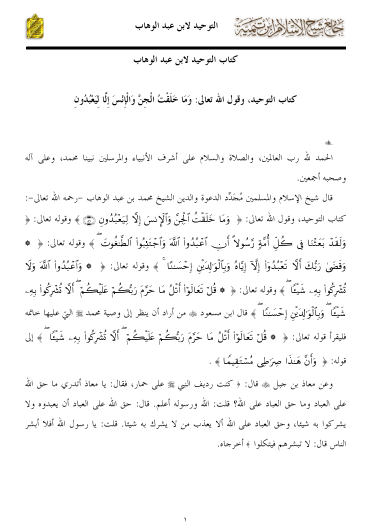 جامع شيخ الإسلام ابن تيمية
التوحيد لابن عبد الوهاب
كتاب التوحيد لابن عبد الوهاب
كتاب التوحيد، وقول الله تعالى: وَمَا خَلَقْتُ الْجِنَّ وَالْإِنْسَ إِلَّا لِيَعْبُدُونِ
الحمد لله رب العالمين، والصلاة والسلام على أشرف الأنبياء والمرسلين نبينا محمد، وعلى آله
وصحبه أجمعين.
قال شيخ الإسلام والمسلمين مُجَدِّد الدعوة والدين الشيخ محمد بن عبد الوهاب -رحمه الله تعالى-:
كتاب التوحيد، وقول الله تعالى: ﴿ وَمَا خَلَقْتُ الْجِنَّ وَالْإِنسَ إِلَّا لِيَعْبُدُونِ ﴾ وقوله تعالى: ﴿
وَلَقَدْ بَعَثْنَا فِي كُلِّ أُمَّةٍ رَّسُولًا أَنِ اعْبُدُوا اللَّهَ وَاجْتَنِبُوا الطَّاغُوتَ ﴾ وقوله تعالى: ﴿ *
وَقَضَى رَبُّكَ أَلَّا تَعْبُدُوا إِلَّا إِيَّاهُ وَبِالْوَالِدَيْنِ إِحْسَانًا ﴾ وقوله تعالى: ﴿ * وَاعْبُدُوا اللَّهَ وَلَا
تُشْرِكُوا بِهِ شَيْئًا ﴾ وقوله تعالى: ﴿ * قُلْ تَعَالَوْا أَتْلُ مَا حَرَّمَ رَبُّكُمْ عَلَيْكُمْ أَلَّا تُشْرِكُوا بِهِ
شَيْئًا وَبِالْوَالِدَيْنِ إِحْسَانًا ﴾ قال ابن مسعود ﷺ من أراد أن ينظر إلى وصية محمد ﷺ التي عليها خاتمه
فليقرأ قوله تعالى: ﴿ * قُلْ تَعَالَوْا أَتْلُ مَا حَرَّمَ رَبُّكُمْ عَلَيْكُمْ أَلَّا تُشْرِكُوا بِهِ شَيْئًا ﴾ إلى
قوله: ﴿ وَأَنَّ هَذَا صِرَاطِي مُسْتَقِيمًا ﴾ .
وعن معاذ بن جبل قال: ﴿ كنت رديف النبي ﷺ على حمار، فقال: يا معاذ أتدري ما حق الله
على العباد وما حق العباد على الله؟ قلت: الله ورسوله أعلم. قال: حق الله على العباد أن يعبدوه ولا
يشركوا به شيئا، وحق العباد على الله ألا يعذب من لا يشرك به شيئا. قلت: يا رسول الله أفلا أبشر
الناس قال: لا تبشرهم فيتكلوا ﴾ أخرجاه.
١